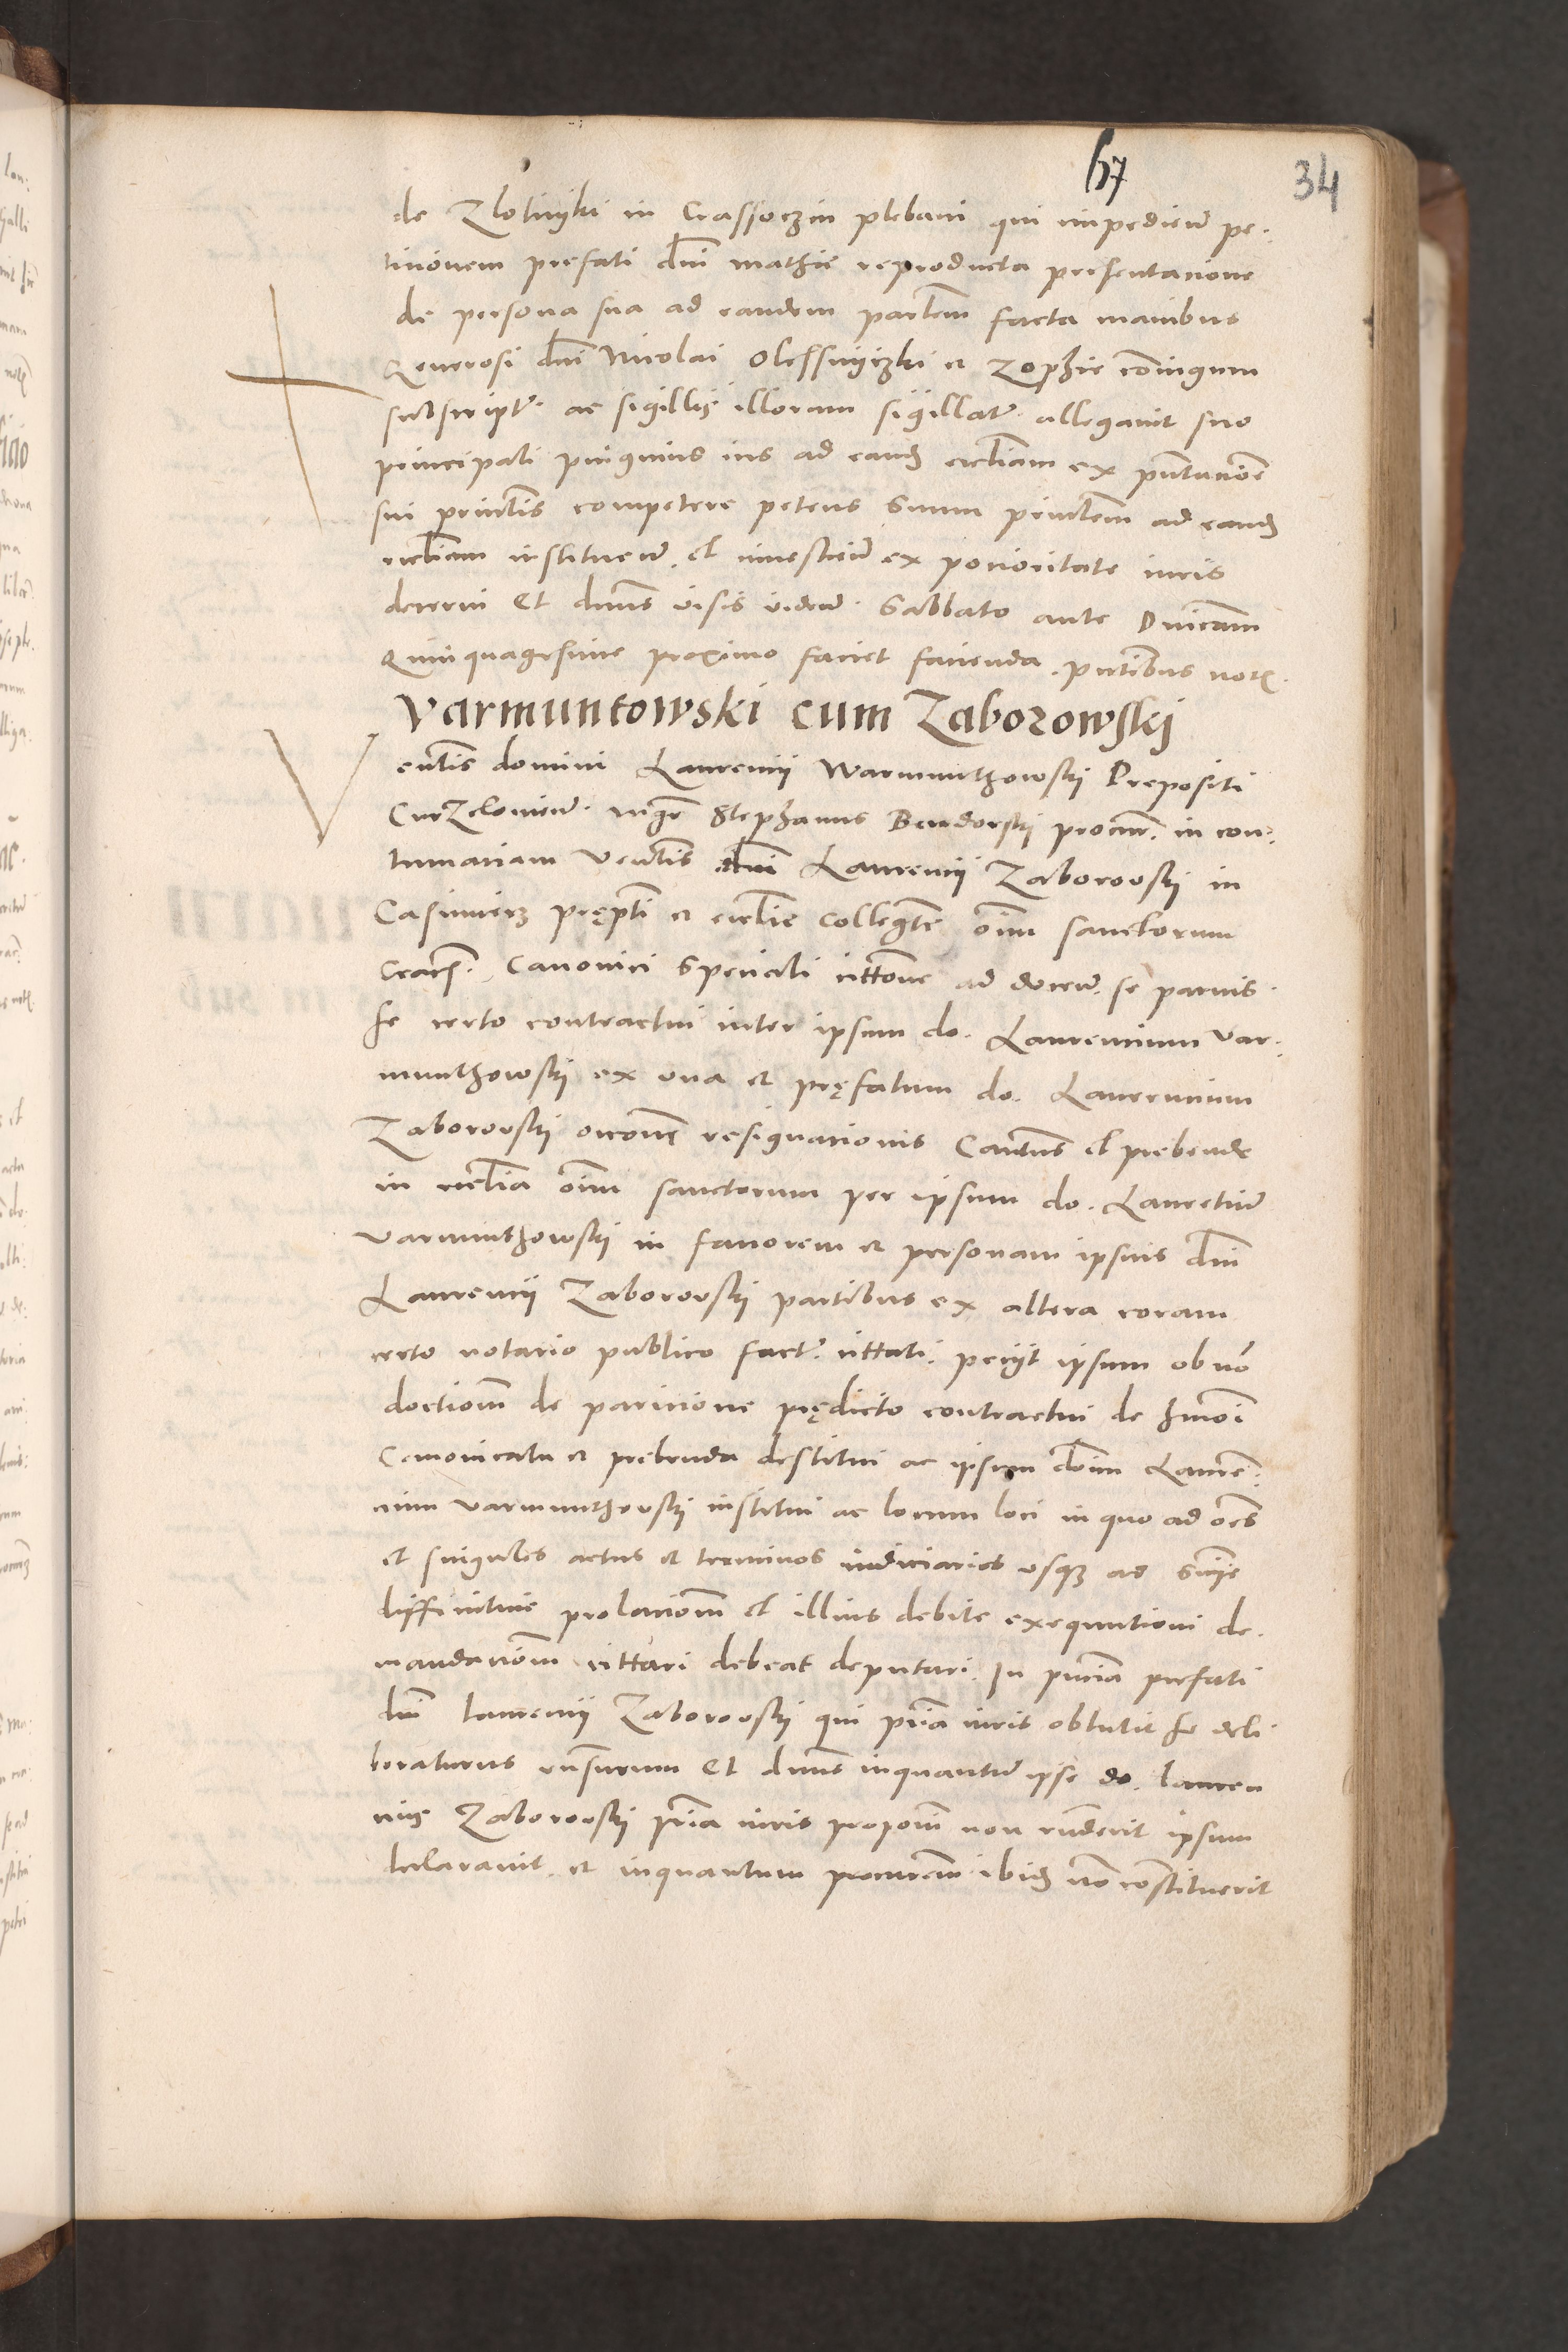 67
34
de Zlotnyki in Crassoczin plebani qui impedieñ pe-
ticionem prefati dni mathie reproducta presentacione
de persona sua ad eandem parlem facta manibus
Generosi dni Nicolai Olessnyczki et Zophie coniugum
subscript. ac sigillis illorum sigillat. allegauit suo
principali pinguius ius ad eand eccliam ex pñtacione
sui principlis competere petens Suum princlem ad eand
eccliam instituend. et inuestiend ex pocioritate iuris
decerni Et dnus visis videnđ. Sabbato ante Dnicam
Quinquagesime proximo faciet facienda. prtibus not.
Varmuntowski cum Zaborowskj
Venlis domini Laurencij Warmunthowskj Prepositi
Curzelouieñ. mgr Stephanus Bendorskj procur. in con-
tumaciam Venlis dni Laurencij Zaborovskj in
Casimierz prępti et ecclie Collegte oim sanctorum
Cracñ. Canonici Speciali cittone ad docenđ. se paruis-
se certo contractui inter ipsum do. Laurencium Var-
munthowskj ex vna et pręfatum do. Laurencium
Zaborovskj occone resignacionis Cantus et prebende
in ecclia oim sanctorum per ipsum do. Lauretium
Varmunthowskj in fauorem et personam ipsius dni
Laurencij Zaborovskj partibus ex altera coram
certo notario publico fact. cittati. pecijt ipsum ob nõ
doctionem de paricione pędicto contractui de hmõi
Canonicatu et prebenda destitui ac ipsum dnm Lauren-
cium Varmunthovskj institui ac locum loci in quo ad oes
et singulos actus et terminos iudiciarios vsqz ad snije
diffinitiue prolacionem et illius debite exequutioni de-
mandacionem cittari debeat deputari. In pncia prefati
dni laurencij Zaborovskj qui pria iuris obtulit se deli
beraturus rñsurum Et dnus inquantum ipse do. lauren
cius Zaborovskj pria iuris proponi non rñderit ipsum
declarauit. et inquantum procurem ibid nõ constituerit